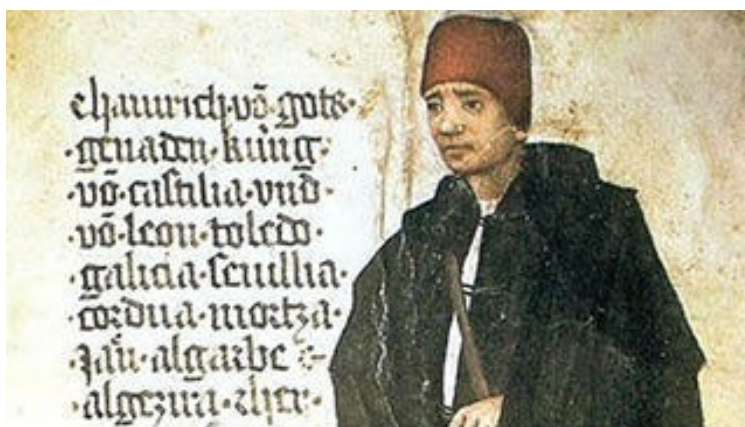 hainrich·vō·gots·
·genaden·küng·
·vō·castilia·vnd·
·vō·leon·toledo·
·galicia·seuillia·
·cordua·mortza·
·algarbe·
·algezira·